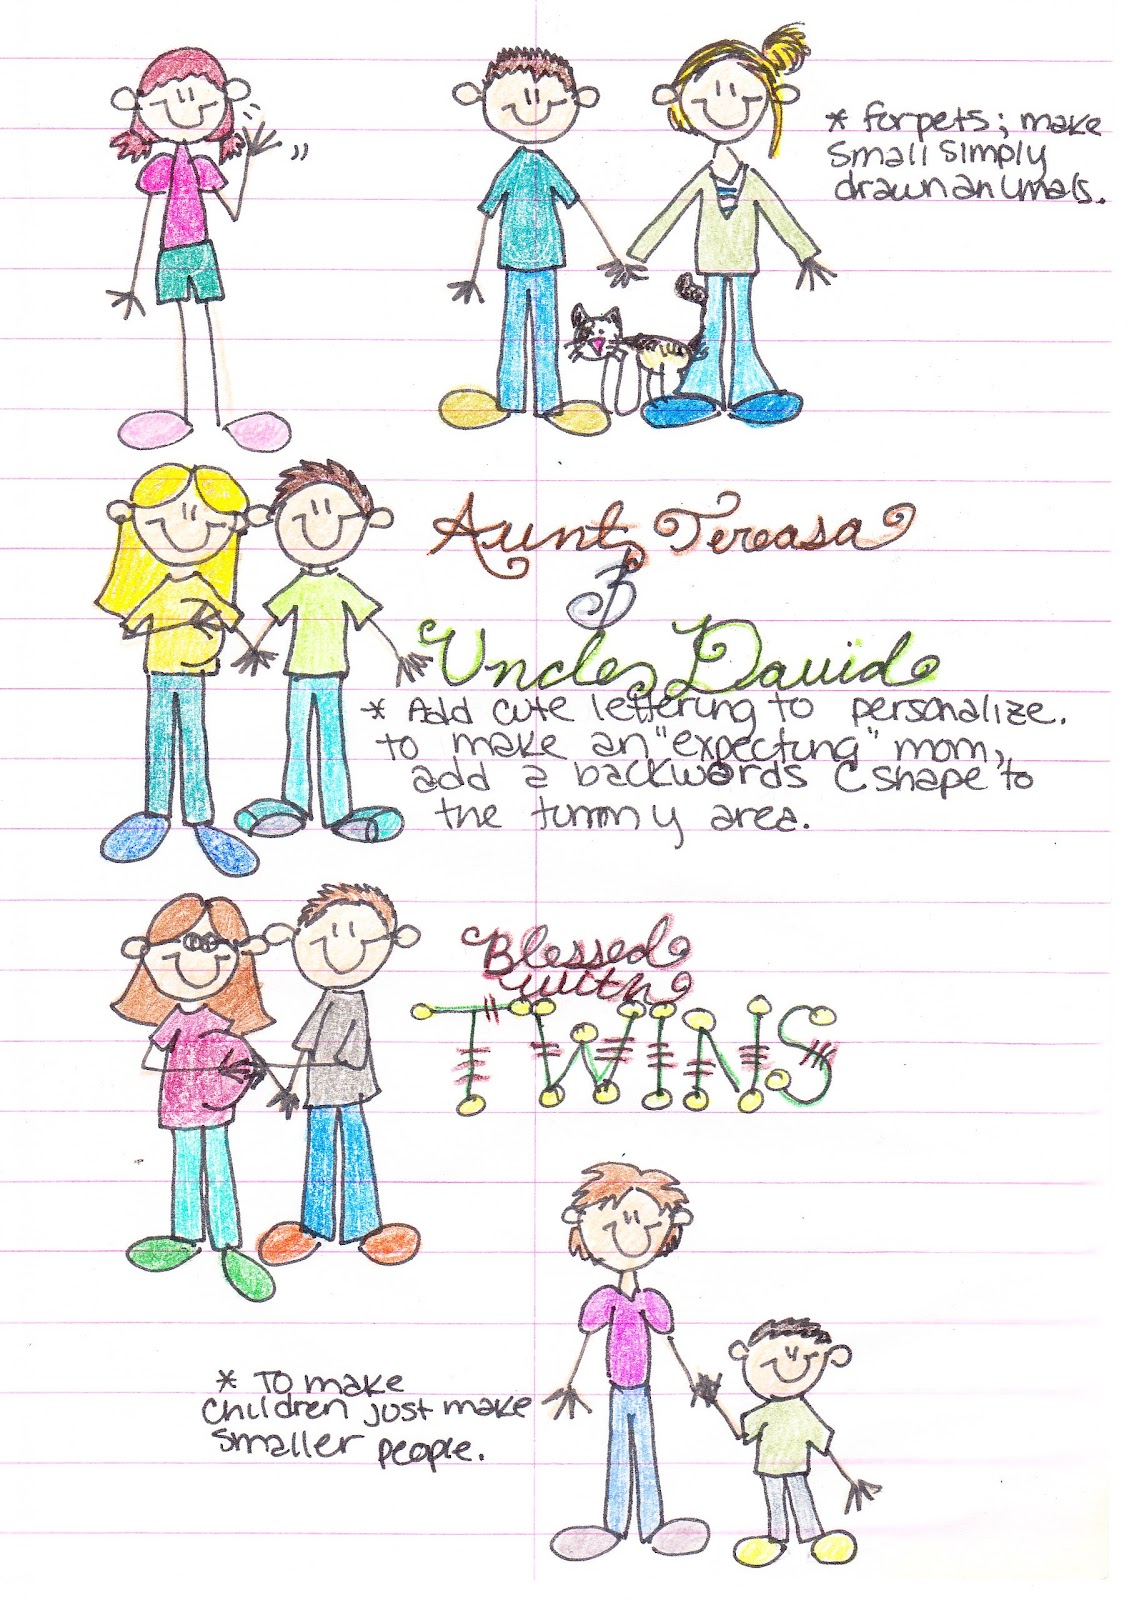 * For pets; make
small simply
drawn animals.
Aunt Tereasa
&
Uncle David
* Add cute lettering to personalize.
to make an "expecting" mom,
add a backwards C shape to
the tummy area.
Blessed
with
TWINS
* To make
children just make
smaller people.